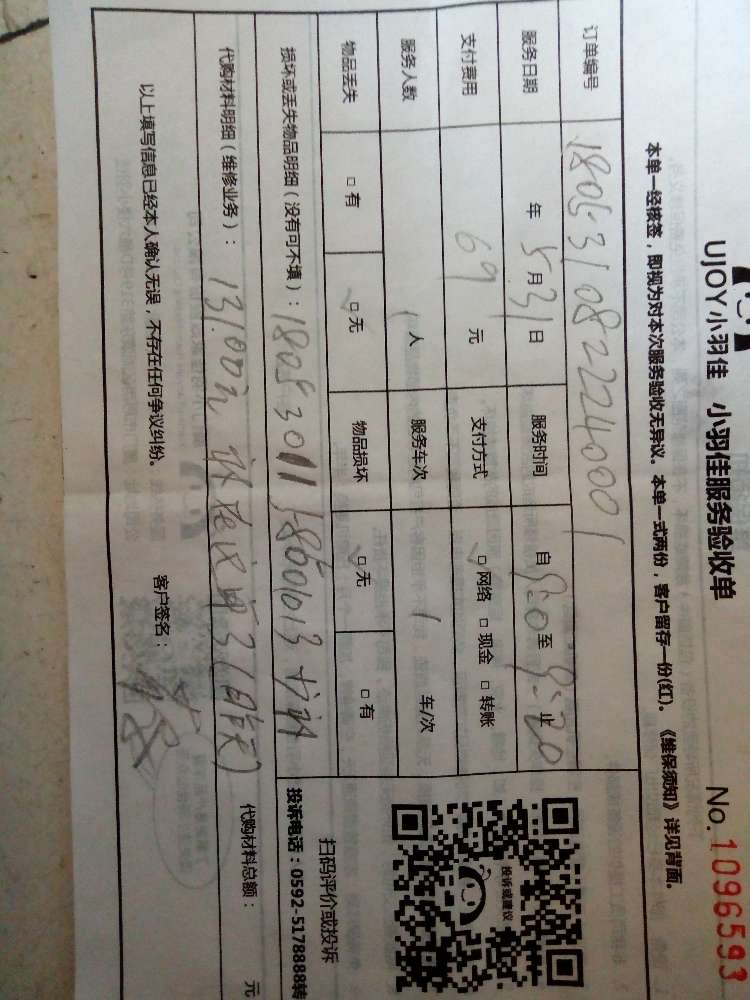 UJOY小羽佳 小羽佳服务验收单
No. 1096593
本单一经核签，即视为对本次服务验收无异议。本单一式两份，客户留存一份(红)。《维保须知》详见背面。
订单编号 1805310822240001
服务日期 年 5月31日 服务时间 自 9:0 至 9:20 止
支付费用 69 元 支付方式 □网络 □现金 □转账
服务人数 1人 服务车次 1 车/次
物品丢失 □有 □无 物品损坏 □无 □有
损坏或丢失物品明细（没有可不填）：
代购材料明细（维修业务）：
代购材料总额： 元
以上填写信息已经本人确认无误，不存在任何争议纠纷。
客户签名：
投诉或建议
扫码评价或投诉
投诉电话：0592-5178888转